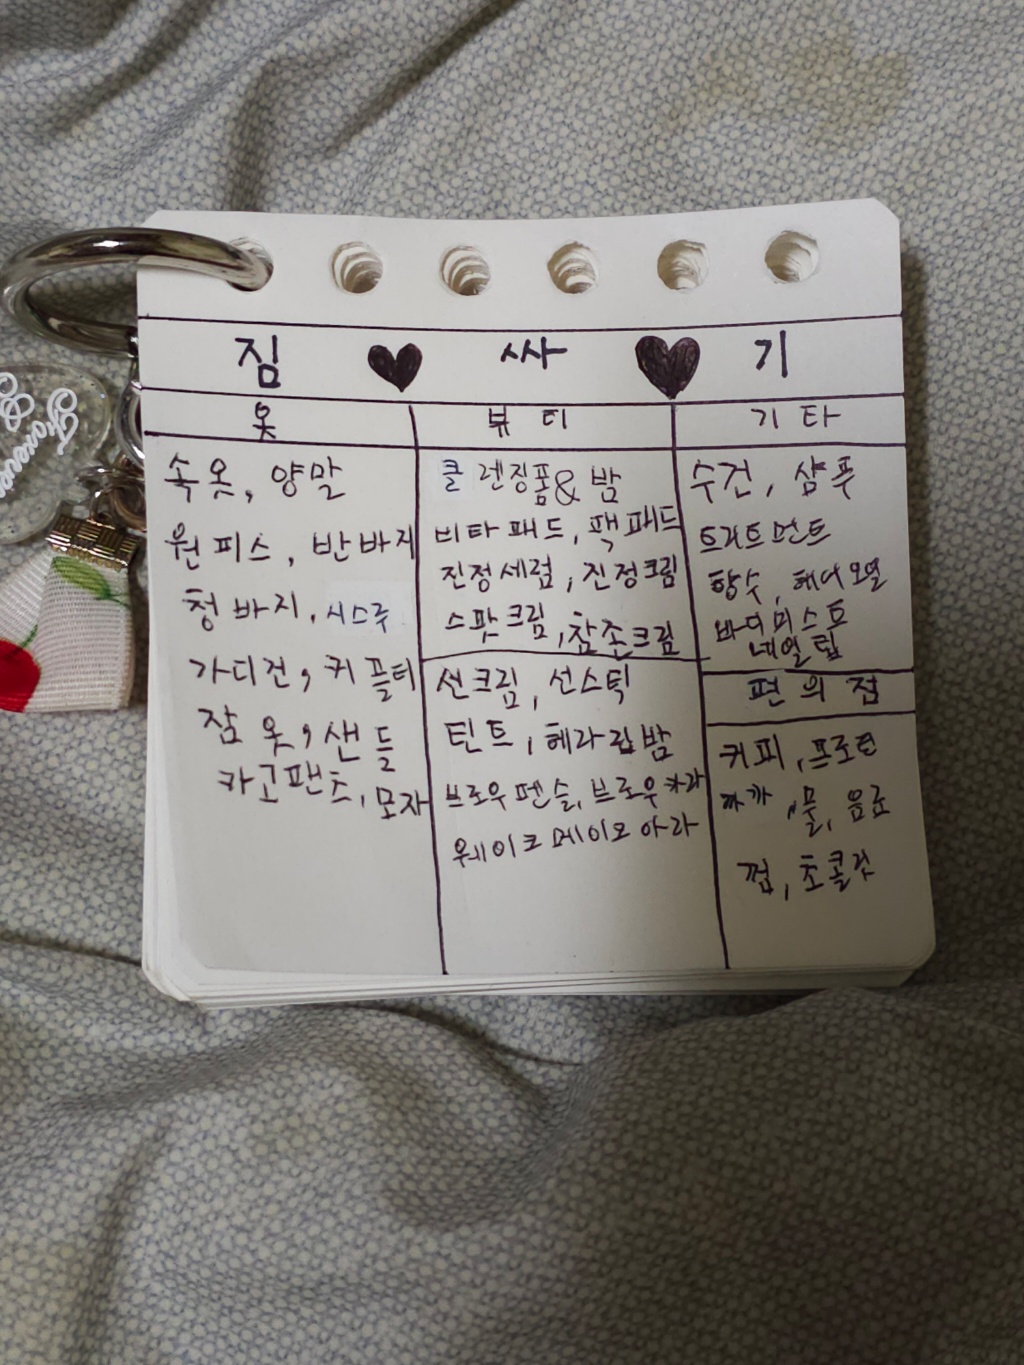 짐 ♥ 싸 ♥ 기
옷
속옷, 양말
원피스, 반바지
청바지, 시스루
가디건, 커플티
잠옷, 샌들
카고팬츠, 모자
뷰티
클렌징폼& 밤
비타패드, 팩패드
진정세럼, 진정크림
스팟크림, 참존크림
선크림, 선스틱
틴트, 헤라립밤
브로우펜슬, 브로우카라
웨이크메이크아라
기타
수건, 샴푸
트리트먼트
향수, 헤어오일
바디미스트
네일팁
편의점
커피, 프로틴
까까, 물, 음료
껌, 초콜릿
Forever